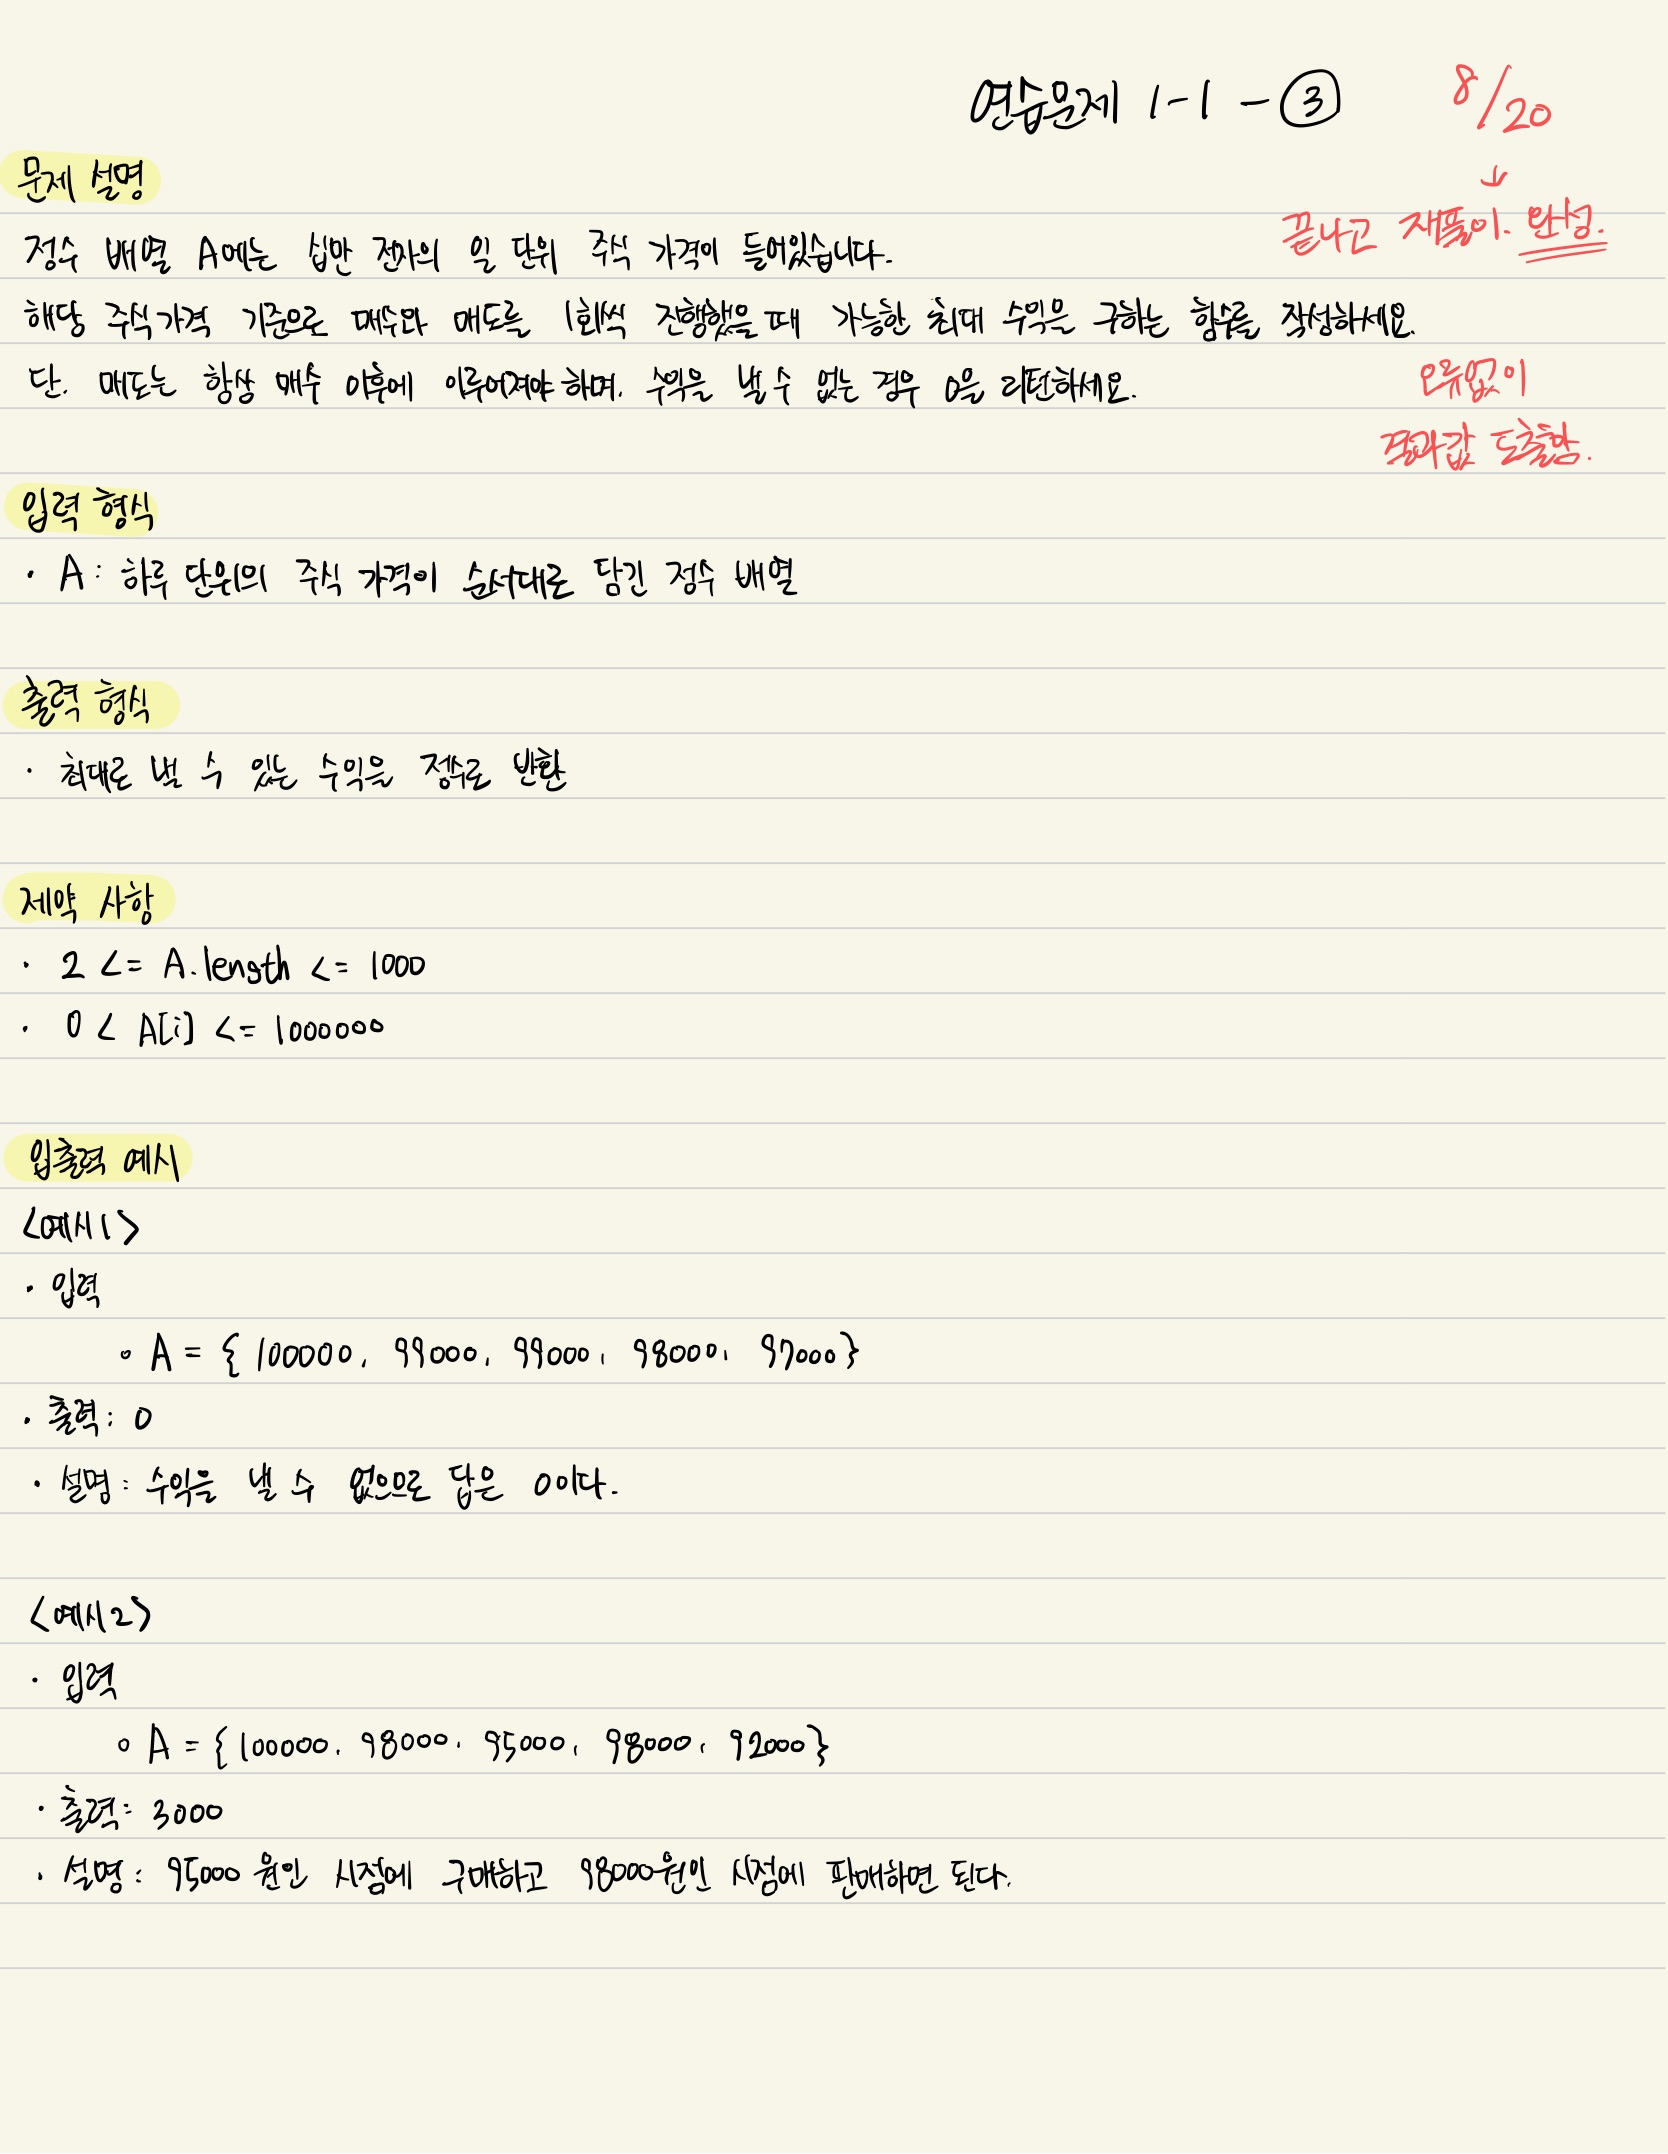 연습문제 1-1 - ③
8/20
↓
끝나고 재풀이. 완성.
문제 설명
정수 배열 A에는 십만 전자의 일 단위 주식 가격이 들어있습니다.
해당 주식가격 기준으로 매수와 매도를 1회씩 진행했을 때 가능한 최대 수익을 구하는 함수를 작성하세요.
단. 매도는 항상 매수 이후에 이루어져야 하며. 수익을 낼 수 없는 경우 0을 리턴하세요.
오류없이
결과값 도출함.
입력 형식
· A: 하루 단위의 주식 가격이 순서대로 담긴 정수 배열
출력 형식
· 최대로 낼 수 있는 수익을 정수로 반환
제약 사항
· 2 <= A.length <= 1000
· 0 < A[i] <= 1000000
입출력 예시
<예시1>
· 입력
o A = { 100000. 99000. 99000. 98000. 97000}
· 출력: 0
· 설명: 수익을 낼 수 없으므로 답은 0이다.
<예시2>
· 입력
o A = {100000. 98000. 95000. 98000. 92000}
· 출력: 3000
· 설명: 95000원인 시점에 구매하고 98000원인 시점에 판매하면 된다.